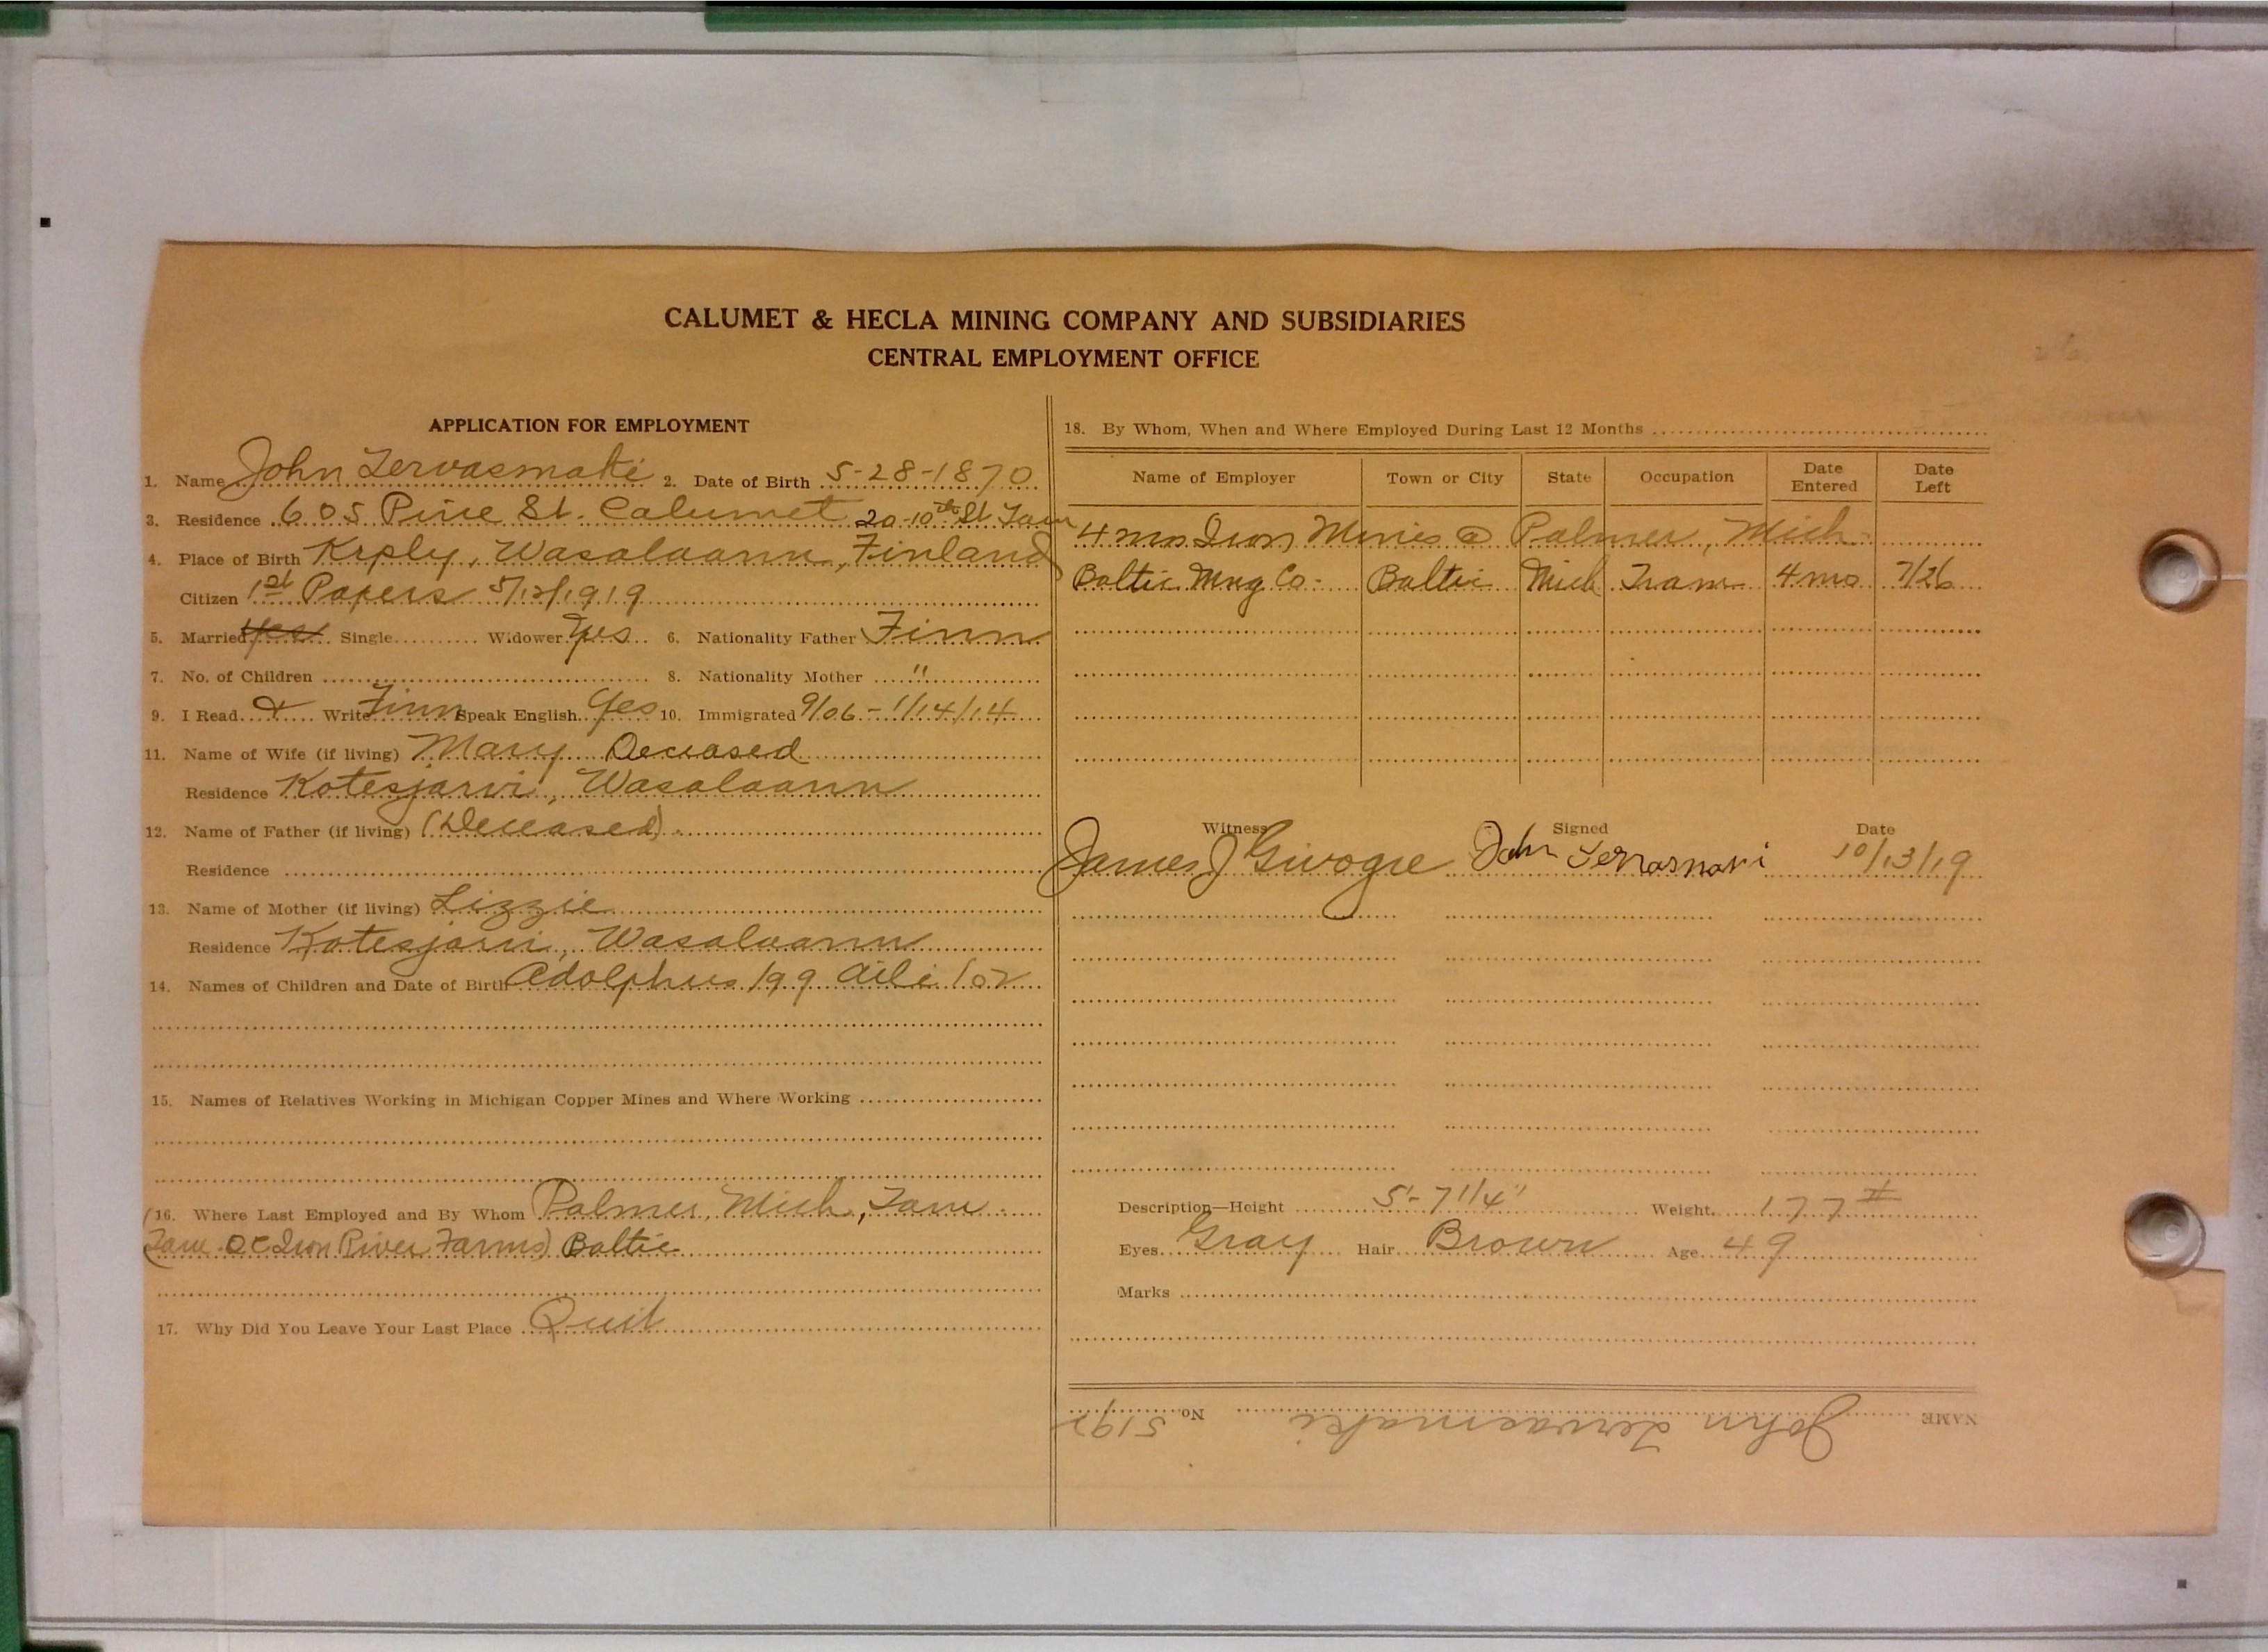 CALUMET & HECLA MINING COMPANY AND SUBSIDIARIES
CENTRAL EMPLOYMENT OFFICE
APPLICATION FOR EMPLOYMENT
1. Name John Tervasmaki 2. Date of Birth 5-28-1870
3. Residence 605 Pine St. Calumet 20-10th St
4. Place of Birth Keply, Wasalaann, Finland
Citizen 1st Papers 5/12/1919
5. Married yes Single Widower Yes 6. Nationality Father Finn
7. No. of Children 8. Nationality Mother "
9. I Read & Write Finn Speak English Yes 10. Immigrated 9/06 - 1/14/14
11. Name of Wife (if living) Mary Deceased
Residence Kotesjarvi, Wasalaann
12. Name of Father (if living) (Deceased)
Residence
13. Name of Mother (if living) Lizzie
Residence Kotesjarvi, Wasalaann
14. Names of Children and Date of Birth Adolphus /99 Aili /02
15. Names of Relatives Working in Michigan Copper Mines and Where Working
16. Where Last Employed and By Whom Palmer, Mich.,
Iron River Farms) Baltic
17. Why Did You Leave Your Last Place Quit
18. By Whom, When and Where Employed During Last 12 Months
Name of Employer Town or City State Occupation Date Entered Date Left
4 mos Iron Mines @ Palmer, Mich.
Baltic Mng Co. Baltic Mich Tram 4 mo 7/26
Witness Signed Date
James J Givogre John Terrasmaki 10/13/19
Description—Height 5'-7 1/4" Weight 177 #
Eyes Gray Hair Brown Age 49
Marks
NAME John Tervasmaki No. 5192